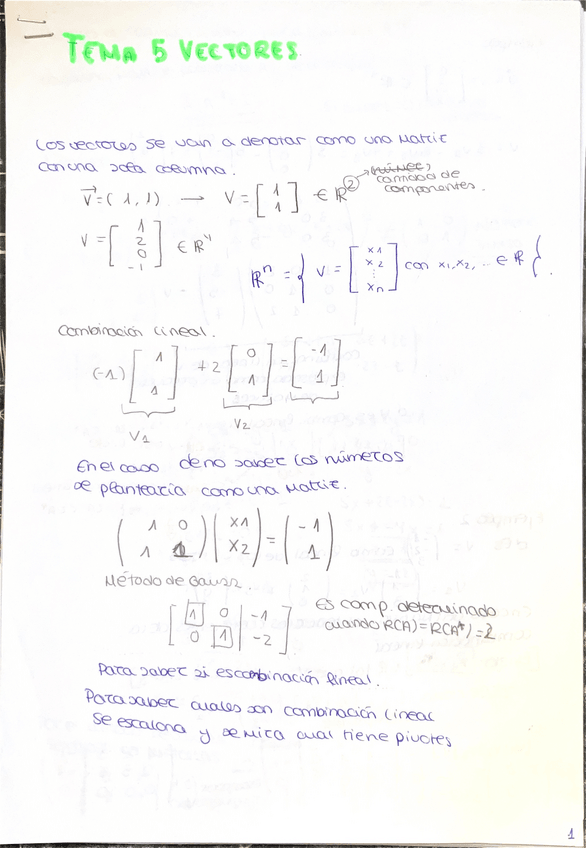 TEMA 5 VECTORES
Los vectores se van a denotar como una Matriz
con una sola columna.
v⃗=(1,1) → V = [1 1] ∈ ℝ² → cantidad de
componentes.
V = [1 2 0 -1] ∈ ℝ⁴
ℝⁿ = { V = [x1 x2 ⋮ xn] con x1, x2, ... ∈ ℝ }
Combinación lineal.
(-1) [1 1] + 2 [0 1] = [-1 1]
V1 V2
En el caso de no saber los números
se plantearía como una Matriz.
(1 0
1 1) (x1
x2) = (-1
1)
Método de Gauss
[1 0 | -1
0 1 | -2]
Es comp. determinado
cuando R(A)=R(A*)=2
Para saber si es combinación lineal.
Para saber cuales son combinación lineal
se escalona y se mira cual tiene pivotes
1